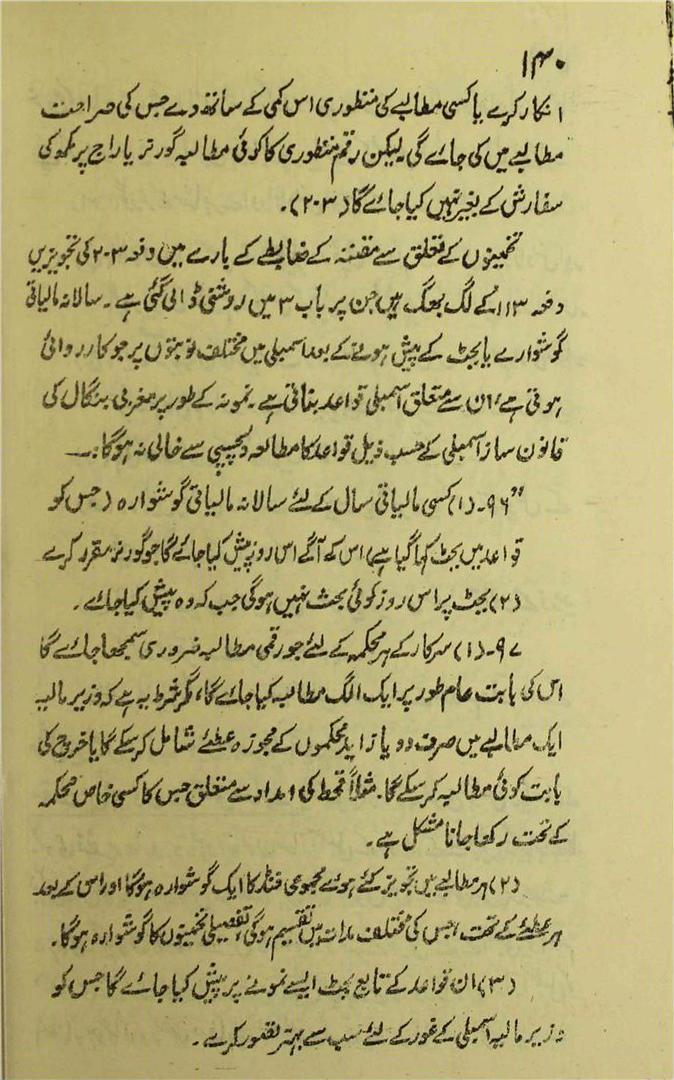 ۱۳۰
انکار کرے یا کسی مطالبے کی منظوری اس کمی کے ساتھ دے جس کی صراحت
مطالبے میں کی جائے گی لیکن رقم منظوری کا کوئی مطالبہ گورنر یا راج پرمکھ کی
سفارش کے بغیر نہیں کیا جائے گا (۲۰۳)۔
تخمینوں کے متعلق سے مقننہ کے ضابطے کے بارے میں دفعہ ۲۰۳ کی تجویزیں
دفعہ ۱۱۳ کے لگ بھگ ہیں جن پر باب ۳ میں روشنی ڈالی گئی ہے۔ سالانہ مالیاتی
گوشوارے یا بجٹ کے پیش ہونے کے بعد اسمبلی میں مختلف نوبتوں پر جو کارروائی
ہوتی ہے، ان سے متعلق اسمبلی قواعد بناتی ہے۔ نمونہ کے طور پر مغربی بنگال کی
قانون ساز اسمبلی کے حسب ذیل قواعد کا مطالعہ دلچسپی سے خالی نہ ہوگا:۔
”۹۶۔ (۱) کسی مالیاتی سال کے لئے سالانہ مالیاتی گوشوارہ (جس کو
قواعد میں بجٹ کہا گیا ہے) اس کے آگے اس روز پیش کیا جائے گا جو گورنر مقرر کرے
(۲) بجٹ پر اس روز کوئی بحث نہیں ہوگی جب کہ وہ پیش کیا جائے۔
۹۷۔ (۱) سرکار کے ہر محکمہ کے لئے جو رقمی مطالبہ ضروری سمجھا جائے گا
اس کی بابت عام طور پر ایک الگ مطالبہ کیا جائے گا، مگر شرط یہ ہے کہ وزیر مالیہ
ایک مطالبے میں صرف دو یا زاید محکموں کے مجوزہ عطئے شامل کر سکے گا یا خروج کی
بابت کوئی مطالبہ کر سکے گا۔ مثلاً قحط کی امداد سے متعلق جس کا کسی خاص محکمہ
کے تحت رکھا جانا مشکل ہے۔
(۲) ہر مطالبے میں تجویز کئے ہوئے مجموعی فنڈ کا ایک گوشوارہ ہوگا اور اس کے بعد
ہر عطئے کے تحت، جس کی مختلف مدات میں تقسیم ہوگی، تفصیلی تخمینوں کا گوشوارہ ہوگا۔
(۳) ان قواعد کے تابع بجٹ ایسے نمونے پر پیش کیا جائے گا جس کو
وزیر مالیہ اسمبلی کے غور کے لئے سب سے بہتر تصور کرے۔